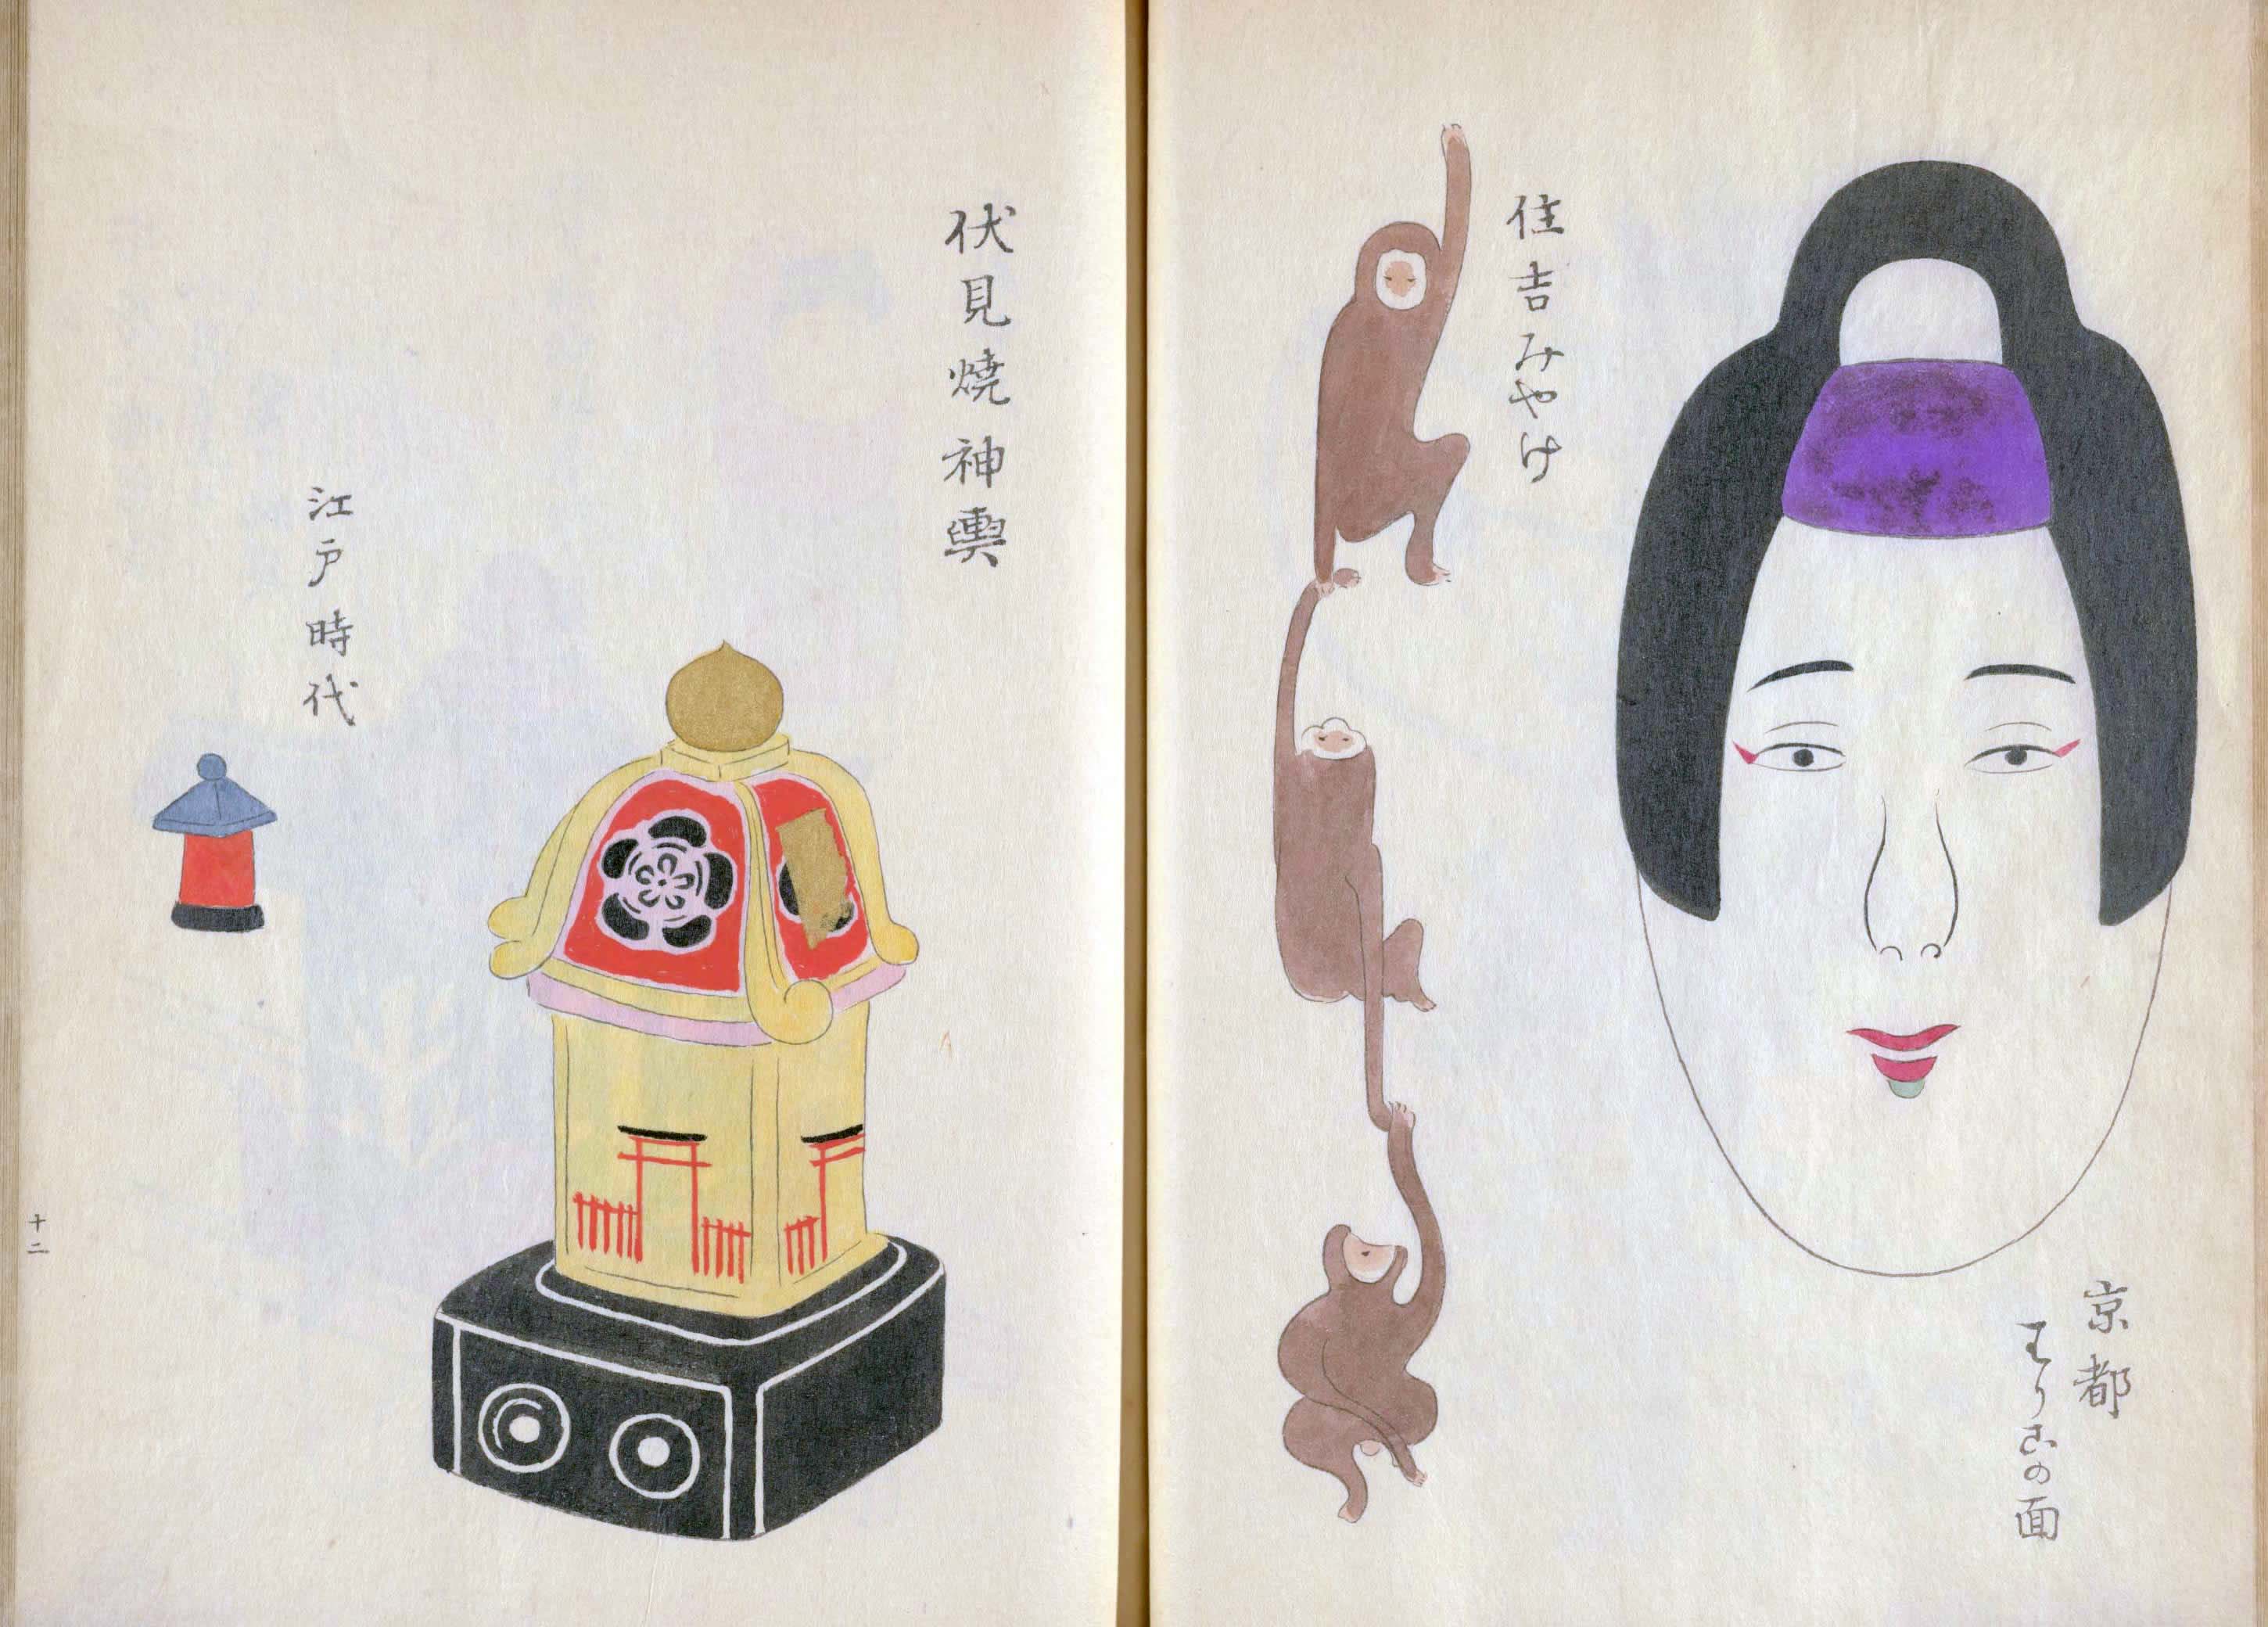 京都
はりこの面
住吉みやけ
伏見燒神輿
江戸時代
十二